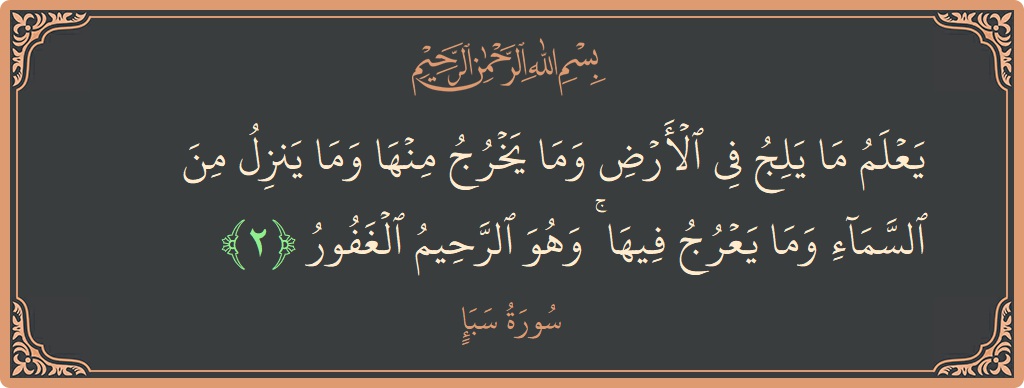 بِسْمِ اللَّهِ الرَّحْمَٰنِ الرَّحِيمِ
يَعْلَمُ مَا يَلِجُ فِي ٱلْأَرْضِ وَمَا يَخْرُجُ مِنْهَا وَمَا يَنزِلُ مِنَ
ٱلسَّمَآءِ وَمَا يَعْرُجُ فِيهَا ۚ وَهُوَ ٱلرَّحِيمُ ٱلْغَفُورُ ﴿٢﴾
سُورَةُ سَبَإٍ